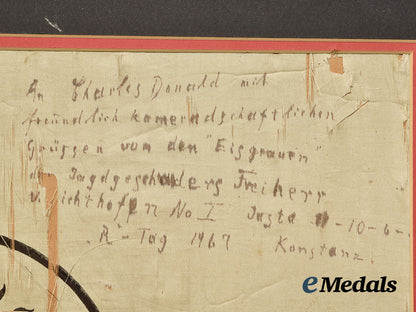 An Charles Donald mit
freundlich kameradschaftlichen
Grüssen vom den "Eisgrauen"
des Jagdgeschwaders Freiherr
v. Richthofen No I Jasta 11-10-6-
"R"-Tag 1967 Konstanz.
eMedals